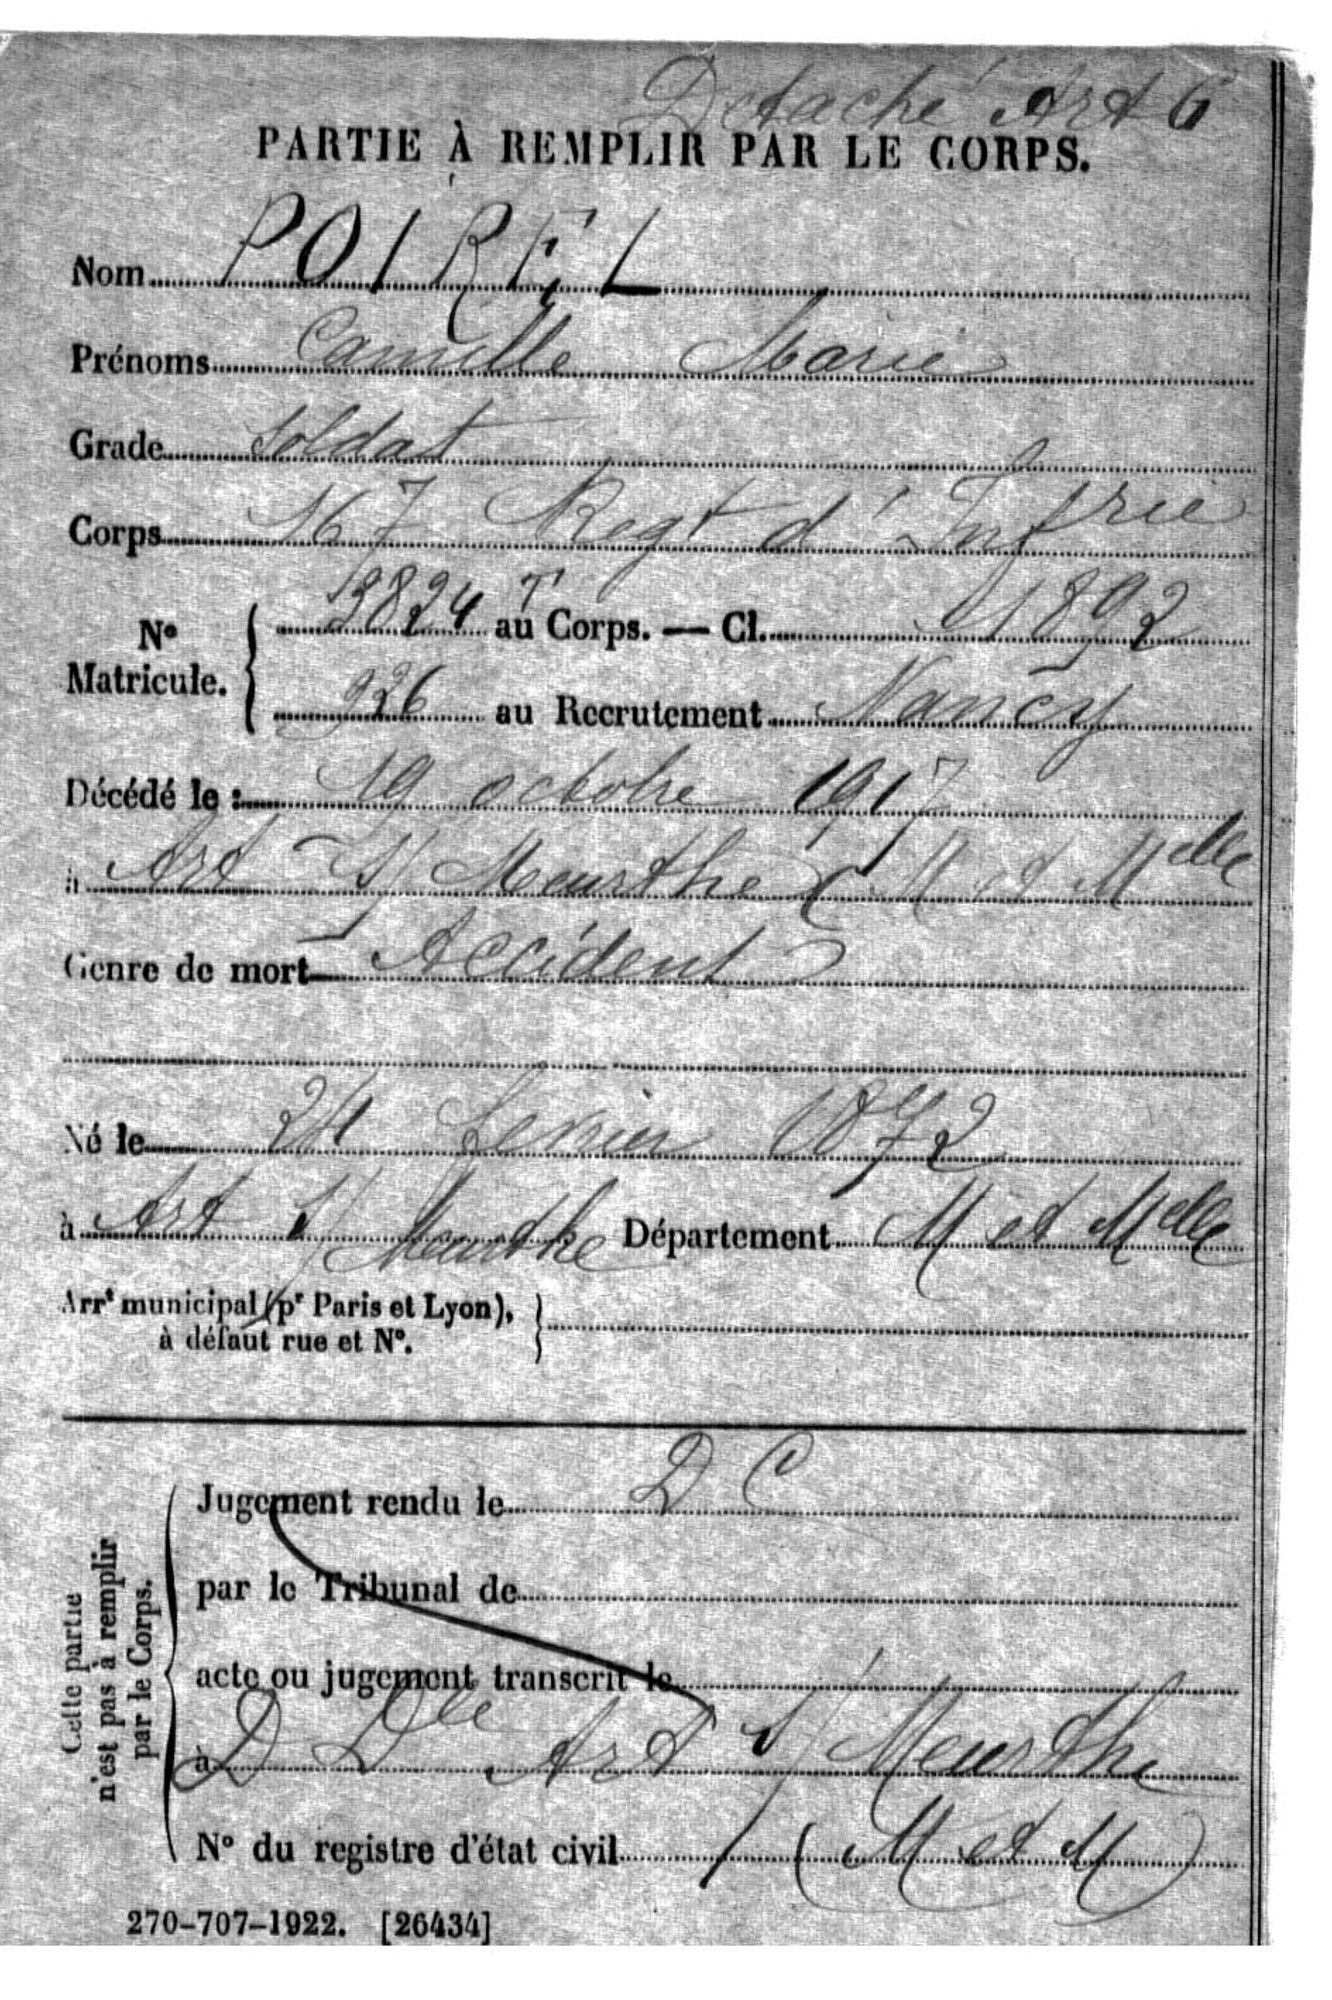 Detaché Art 6
PARTIE À REMPLIR PAR LE CORPS.
Nom POIREL
Prénoms Camille Marie
Grade Soldat
Corps 167 Regt d'Inf rie
N° Matricule. { 13824 T au Corps. — Cl. 1892
926 au Recrutement Nancy
Décédé le : 19 octobre 1917
à Art S/ Meurthe (M et Melle
Genre de mort Accident
Né le 24 fevrier 1872
à Art S/ Meurthe Département M et Melle
Arrt municipal (pr Paris et Lyon),
à défaut rue et N°.
Cette partie
n'est pas à remplir
par le Corps.
Jugement rendu le D C
par le Tribunal de
acte ou jugement transcrit le
à D Dle Art S/ Meurthe
N° du registre d'état civil (M et M)
270-707-1922. [26434]